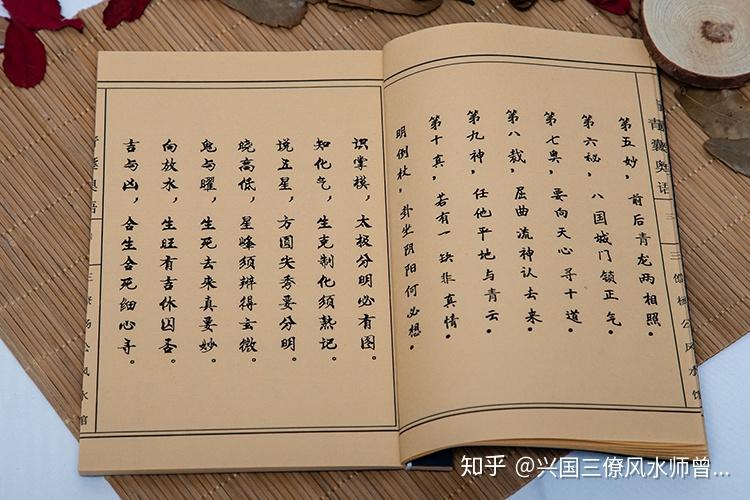 青囊奥语 三 三僚杨公风水馆
第五妙，前后青龙两相照。
第六秘，八国城门锁正气。
第七奥，要向天心寻十道。
第八裁，屈曲流神认去来。
第九神，任他平地与青云。
第十真，若有一缺非真情。
明倒杖，卦坐阴阳何必想。
识掌模，太极分明必有图。
知化气，生克制化须熟记。
说五星，方圆尖秀要分明。
晓高低，星峰须辨得玄微。
鬼与曜，生死去来真要妙。
向放水，生旺有吉休囚否。
吉与凶，合生合死细心寻。
囊奥语 三僚杨公风水馆
知乎 @兴国三僚风水师曾...